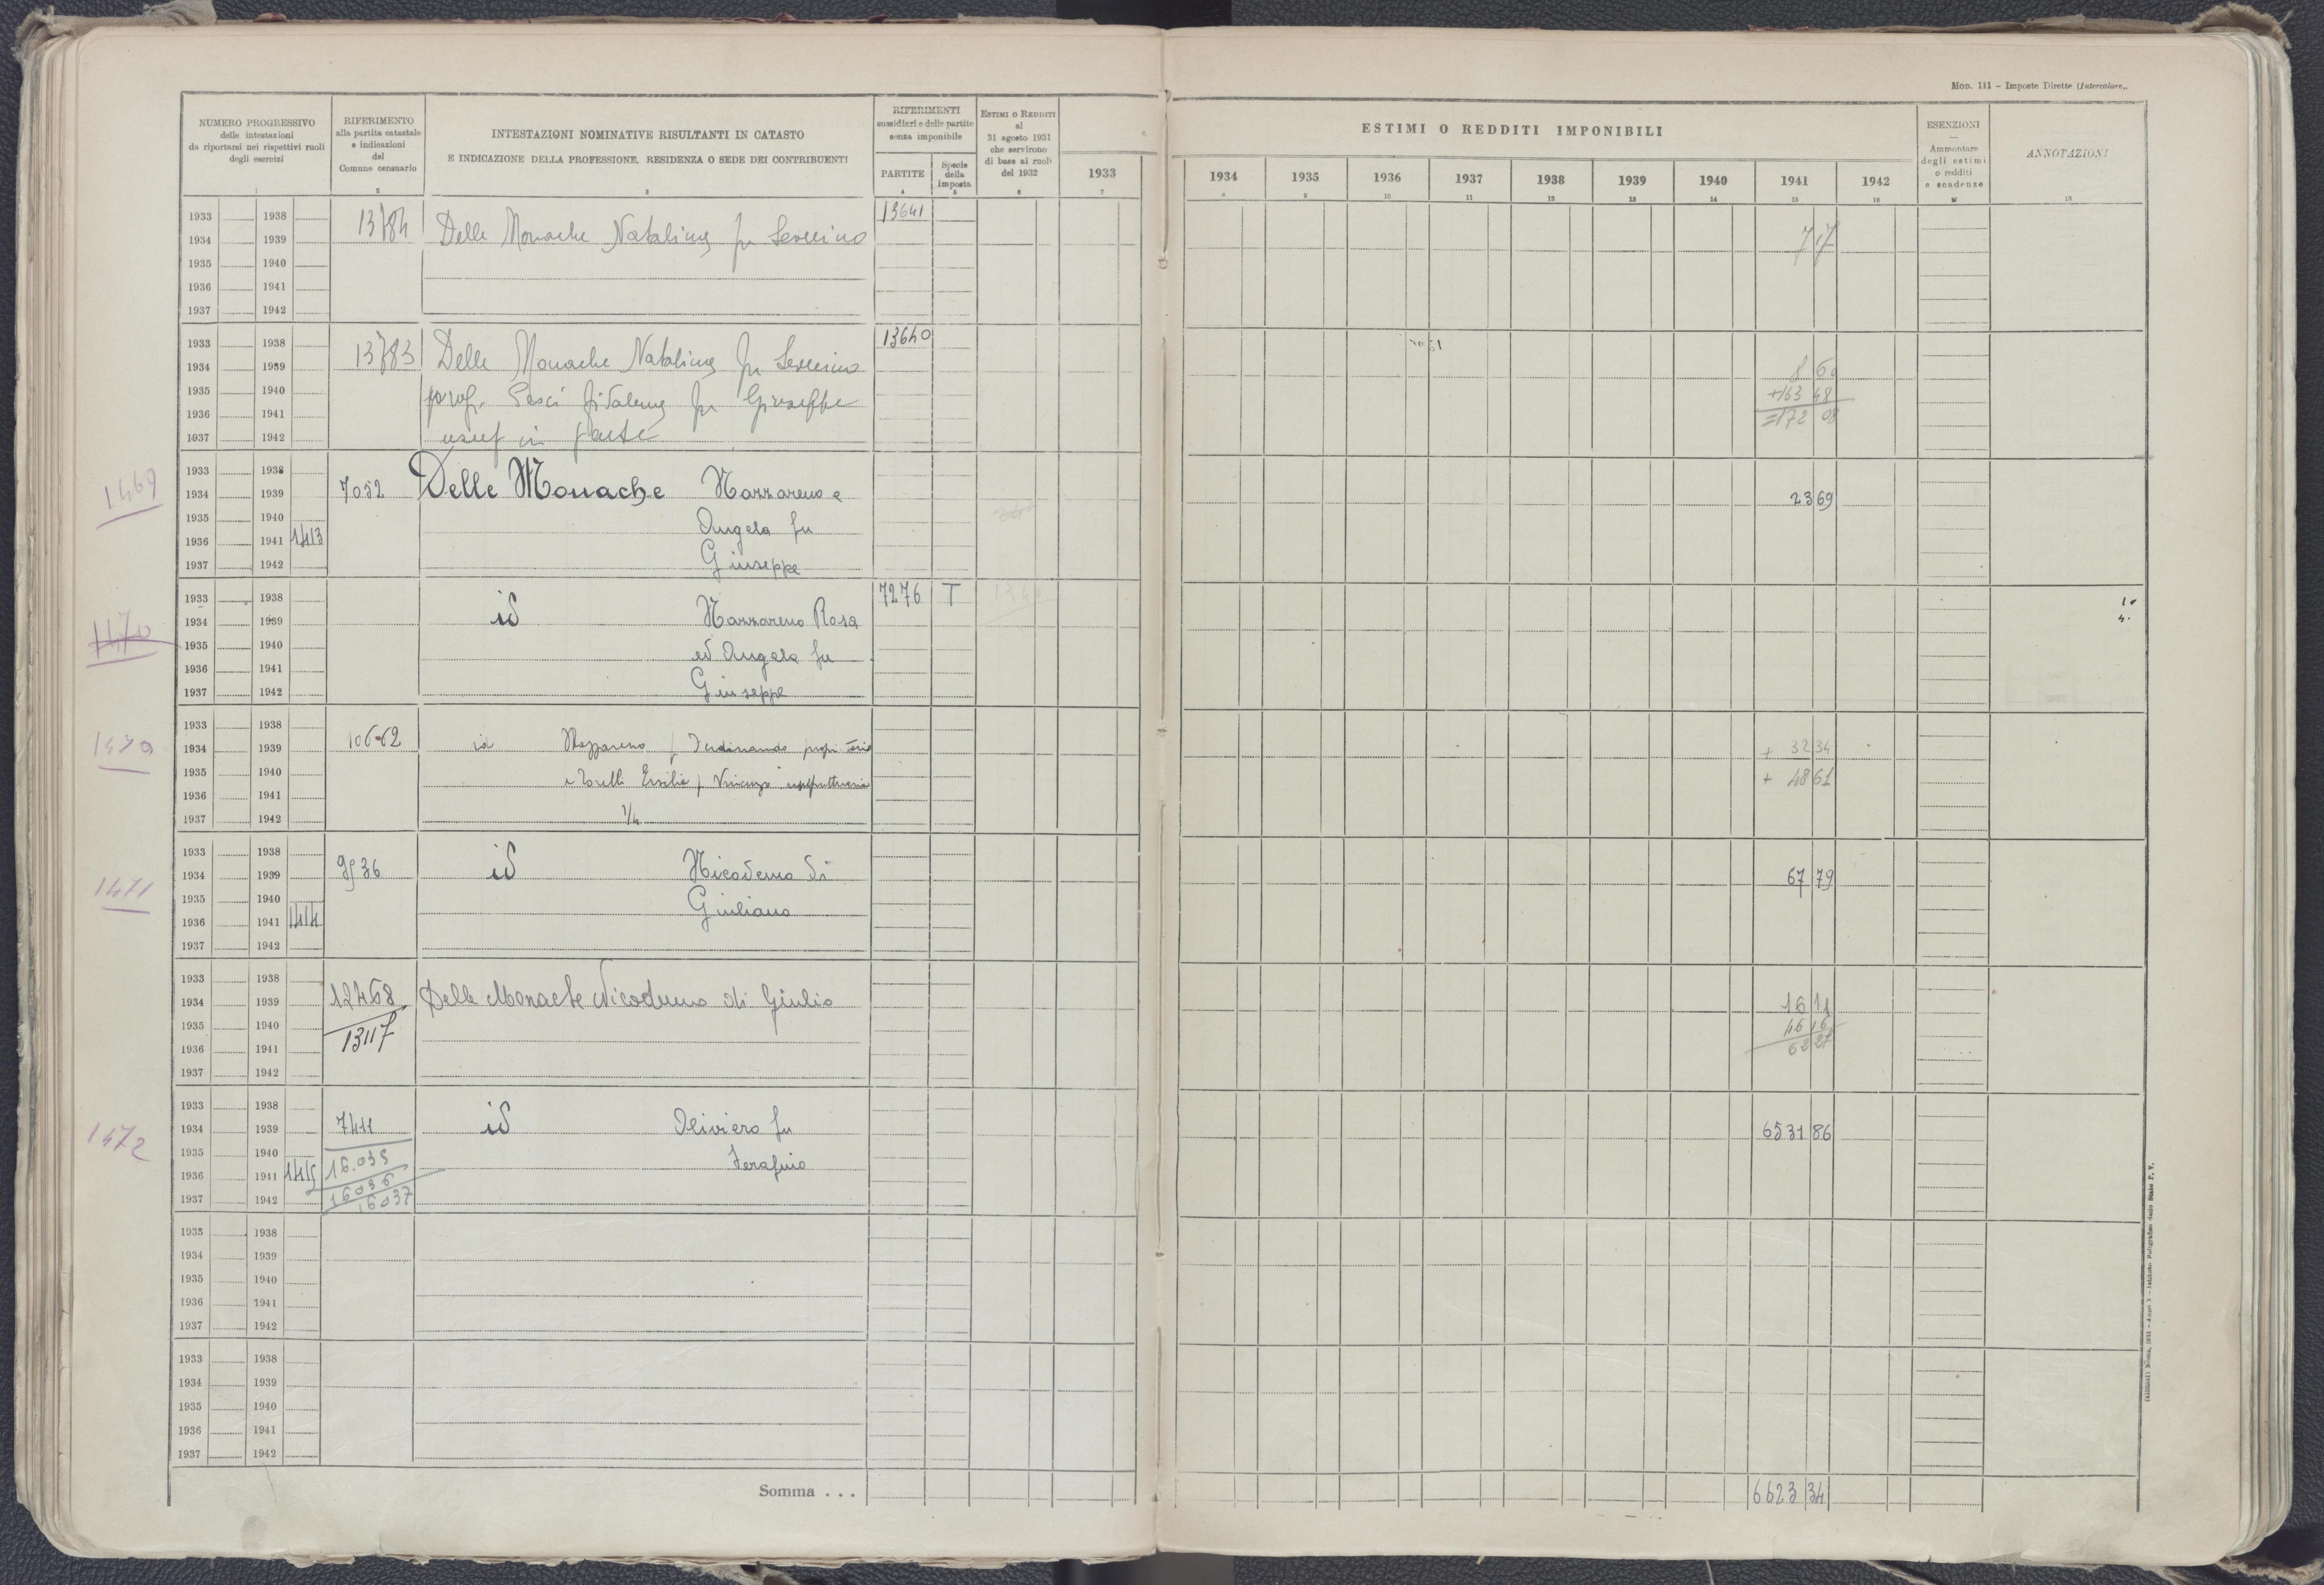 Mod. 111 – Imposte Dirette (Intercalare).
NUMERO PROGRESSIVO
delle intestazioni
da riportarsi nei rispettivi ruoli
degli esercizi
1
RIFERIMENTO
alla partita catastale
e indicazioni
del
Comune censuario
2
INTESTAZIONI NOMINATIVE RISULTANTI IN CATASTO
E INDICAZIONE DELLA PROFESSIONE, RESIDENZA O SEDE DEI CONTRIBUENTI
3
RIFERIMENTI
sussidiari e delle partite
senza imponibile
PARTITE
4
Specie
della
imposta
5
ESTIMI O REDDITI
al
31 agosto 1931
che servirono
di base ai ruoli
del 1932
6
1933
7
ESTIMI O REDDITI IMPONIBILI
1934 1935 1936 1937 1938 1939 1940 1941 1942
8 9 10 11 12 13 14 15 16
ESENZIONI
—
Ammontare
degli estimi
o redditi
e scadenze
ANNOTAZIONI
18
1933 1938 13784 Delle Monache Natalina fu Severino 13641 7 17
1934 1939
1935 1940
1936 1941
1937 1942
1933 1938 13783 Delle Monache Natalina fu Severino 13640 8 60
1934 1939
1935 1940 fu Giuseppe +163 48
1936 1941 =172 08
1937 1942 usuf in parte
1469
1933 1938
1934 1939 7052 Delle Monache Nazzareno e 23 69
1935 1940 Angela fu
1936 1941 1413
1937 1942 Giuseppe
1470
1933 1938 7276 T
1934 1939 id Nazzareno Rosa
1935 1940 ed Angela fu
1936 1941
1937 1942 Giuseppe
1470
1933 1938 10662
1934 1939 id Nazzareno f Ferdinando + 32 34
1935 1940 Ersilia f Vincenzo + 48 61
1936 1941
1937 1942 1/4
1471
1933 1938
1934 1939 9536 id Nicodemo di 67 79
1935 1940 Giuliano
1936 1941 1414
1937 1942
1933 1938
1934 1939 12468 Delle Monache Nicodemo di Giulio 16 11
1935 1940 13117 46 16
1936 1941 62 27
1937 1942
1472
1933 1938
1934 1939 7411 id Oliviero fu 6531 86
1935 1940 16.035 Serafino
1936 1941 1415 16036
1937 1942 16037
1933 1938
1934 1939
1935 1940
1936 1941
1937 1942
1933 1938
1934 1939
1935 1940
1936 1941
1937 1942
Somma . . . 6623 34